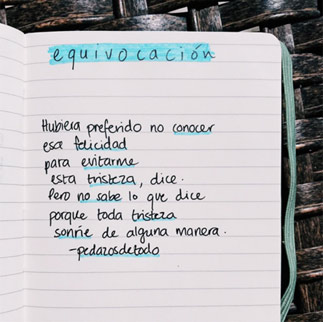 equivocación
Hubiera preferido no conocer
esa felicidad
para evitarme
esta tristeza, dice.
Pero no sabe lo que dice
porque toda tristeza
sonríe de alguna manera.
-pedazosdetodo